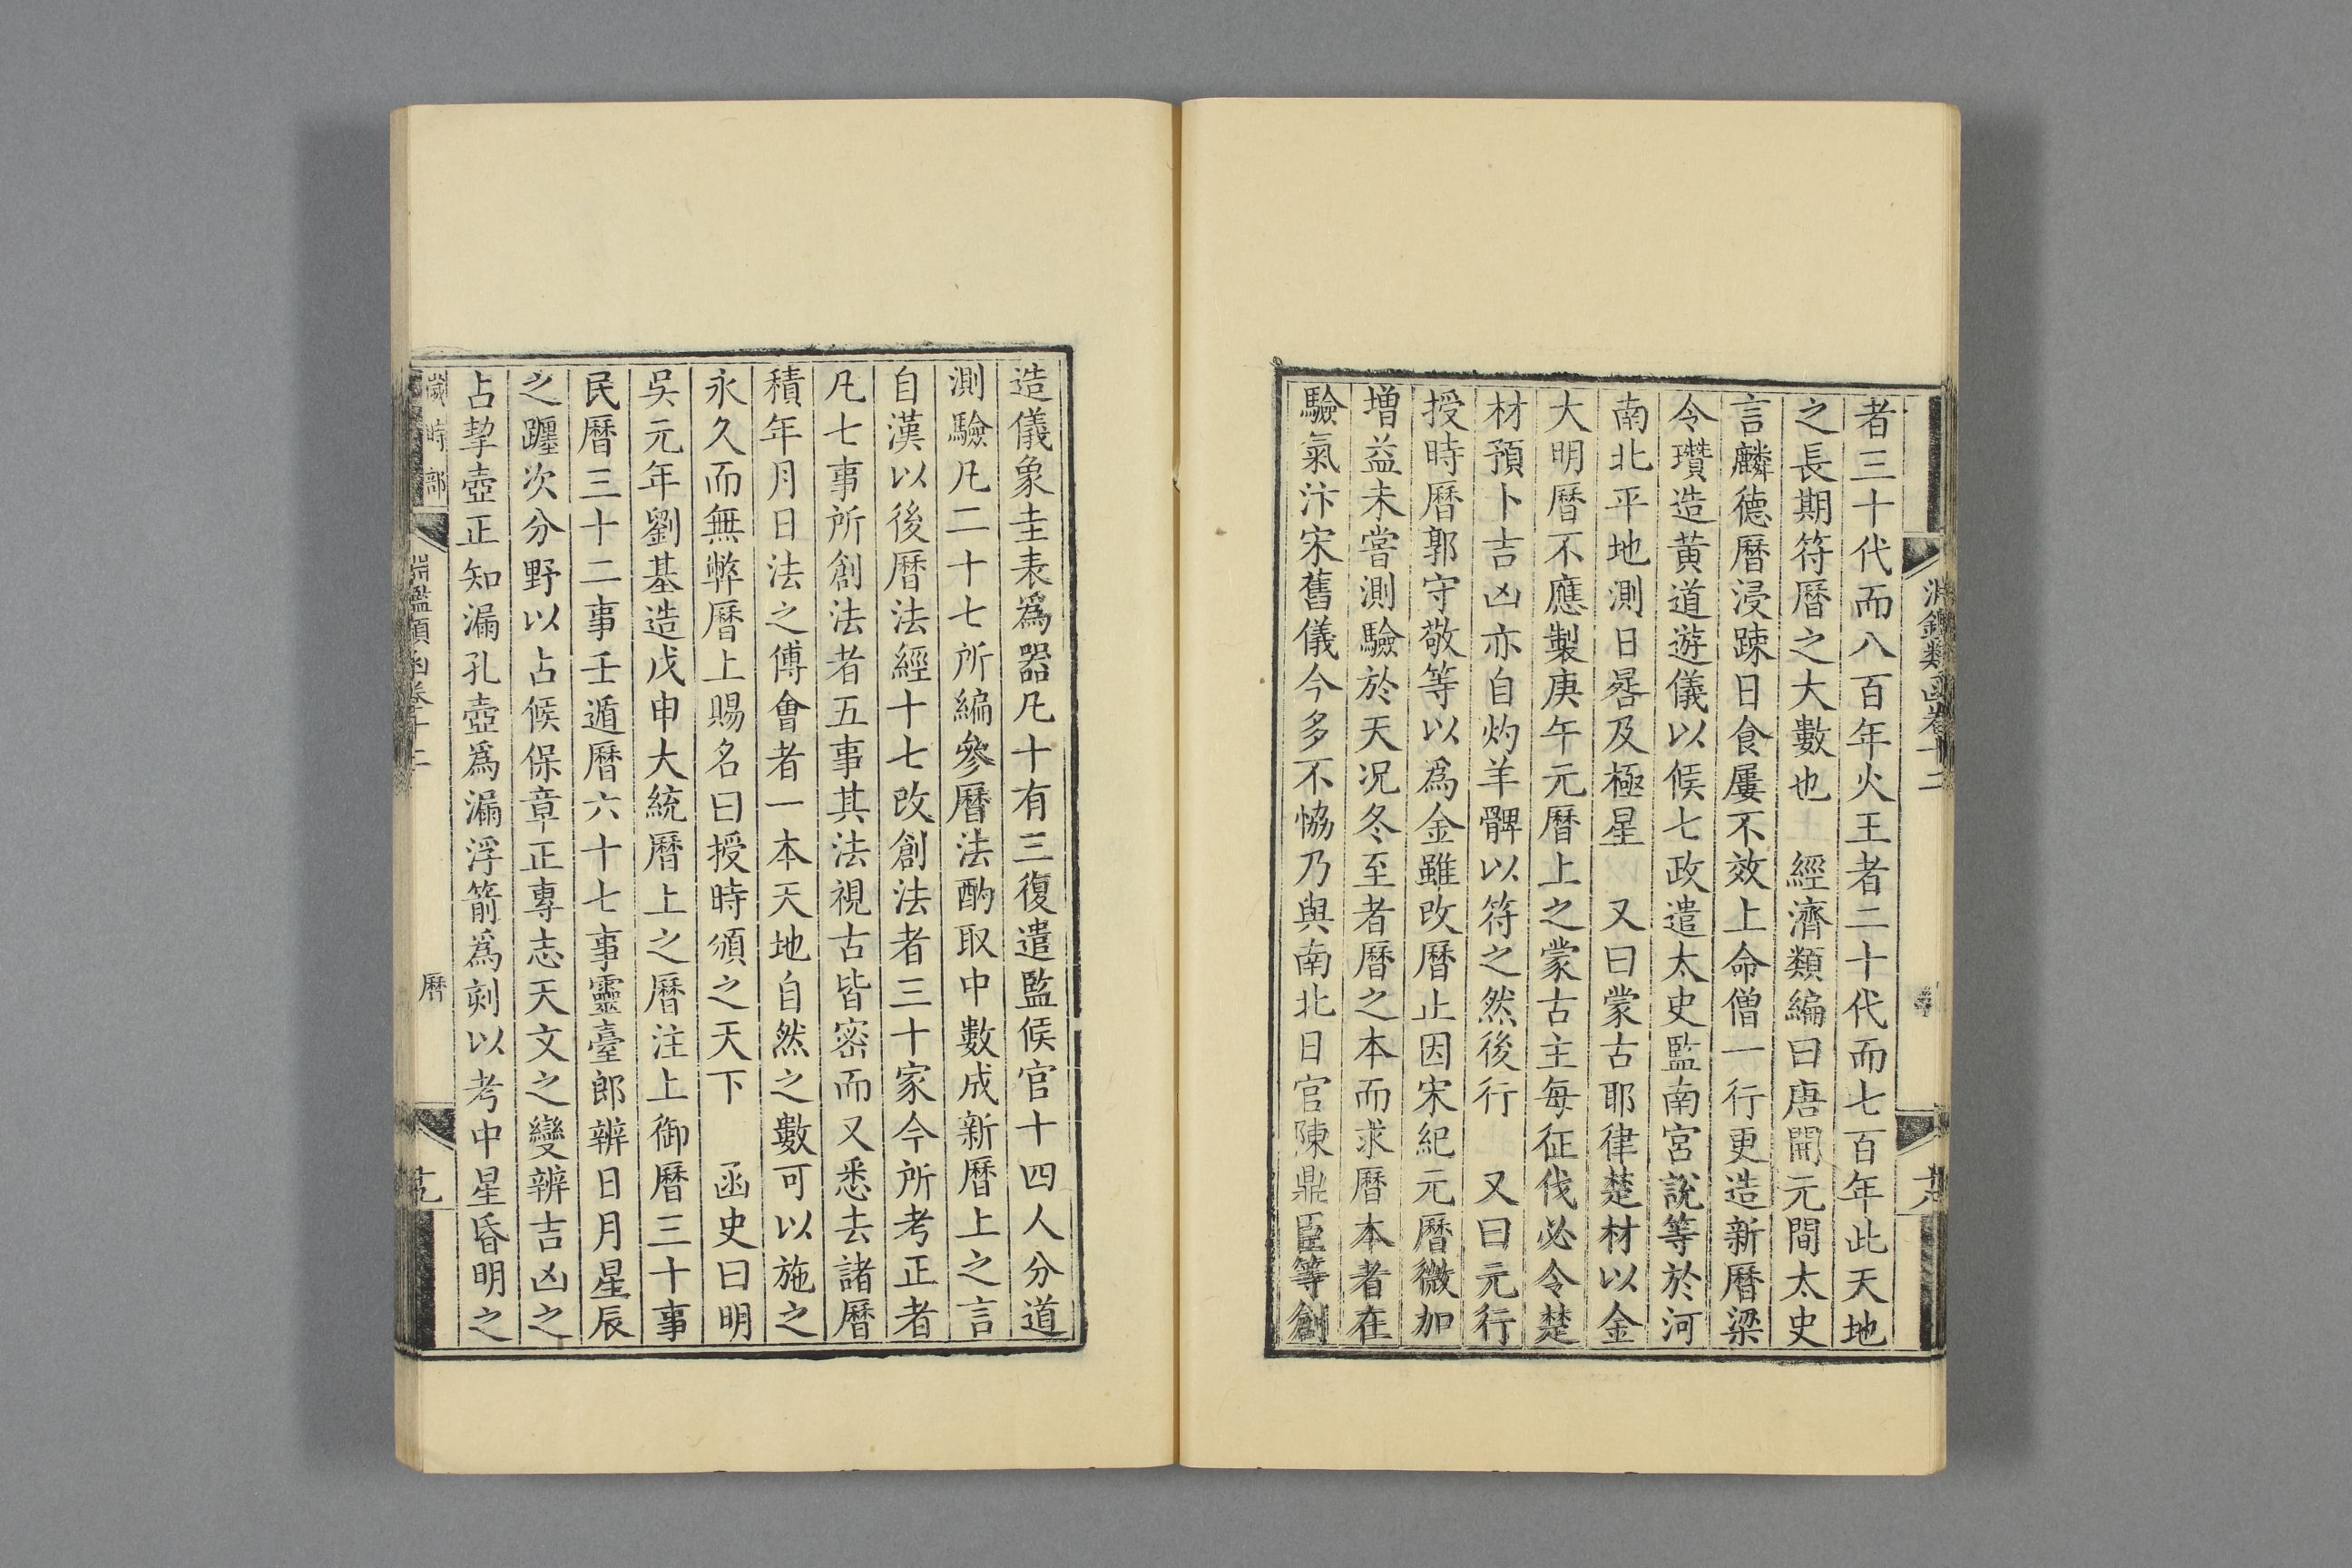 淵鑑類函卷十二
者三十代而八百年火王者二十代而七百年此天地
之長期符曆之大數也 經濟類編曰唐開元間太史
言麟德曆浸踈日食屢不效上命僧一行更造新曆梁
令瓚造黃道遊儀以候七政遣太史監南宮說等於河
南北平地測日晷及極星 又曰蒙古耶律楚材以金
大明曆不應製庚午元曆上之蒙古主每征伐必令楚
材預卜吉凶亦自灼羊髀以符之然後行 又曰元行
授時曆郭守敬等以為金雖改曆止因宋紀元曆微加
増益未嘗測驗於天况冬至者曆之本而求曆本者在
驗氣汴宋舊儀今多不恊乃與南北日官陳鼎臣等創
造儀象圭表為器凡十有三復遣監候官十四人分道
測驗凡二十七所編參曆法酌取中數成新曆上之言
自漢以後曆法經十七改創法者三十家今所考正者
凡七事所創法者五事其法視古皆密而又悉去諸曆
積年月日法之傅會者一本天地自然之數可以施之
永久而無弊曆上賜名曰授時頒之天下 函史曰明
吳元年劉基造戊申大統曆上之曆注上御曆三十事
民曆三十二事壬遁曆六十七事靈臺郎辨日月星辰
之躔次分野以占候保章正專志天文之變辨吉凶之
占挈壺正知漏孔壺為漏浮箭為刻以考中星昏明之
歲時部
淵鑑類函卷十二
曆